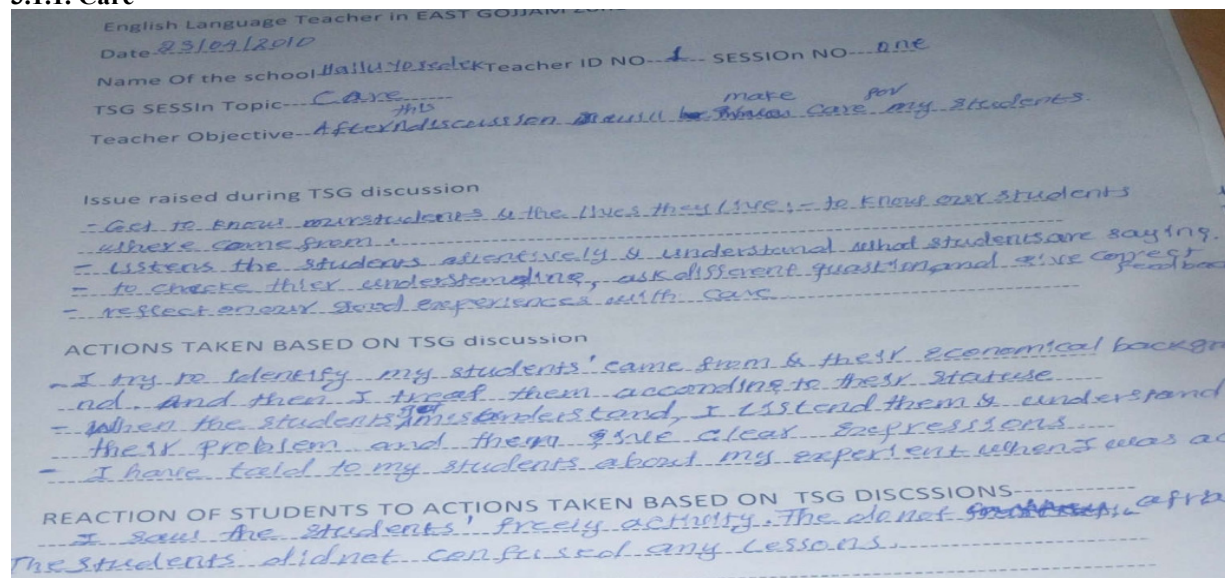 3.1.1. Care
English Language Teacher in EAST GOJJAM
Date 23/09/2010
Name Of the school Hailu Teacher ID NO--1-- SESSIOn NO---one
TSG SESSIn Topic---Care
this make for
Teacher Objective--After discussion will care my students.
Issue raised during TSG discussion
- Get to know our students & the lives they live; - to know our students
where come from.
- Listens the students attentively & understand what students are saying.
- to checke thier understanding, ask different question and give correct
feedbac
- reflect on our good experiences with care
ACTIONS TAKEN BASED ON TSG discussion
- I try to identify my students' came from & their economical backgro
nd. And then I treat them according to their statuse
- When the students get missunderstand, I listend them & understand
their problem and them give clear expressions
- I have tald to my students about my experient when I was a
REACTION OF STUDENTS TO ACTIONS TAKEN BASED ON TSG DISCSSIONS------------
I saw the students' freely activity. The do not afra
The students did not confused any lessons.